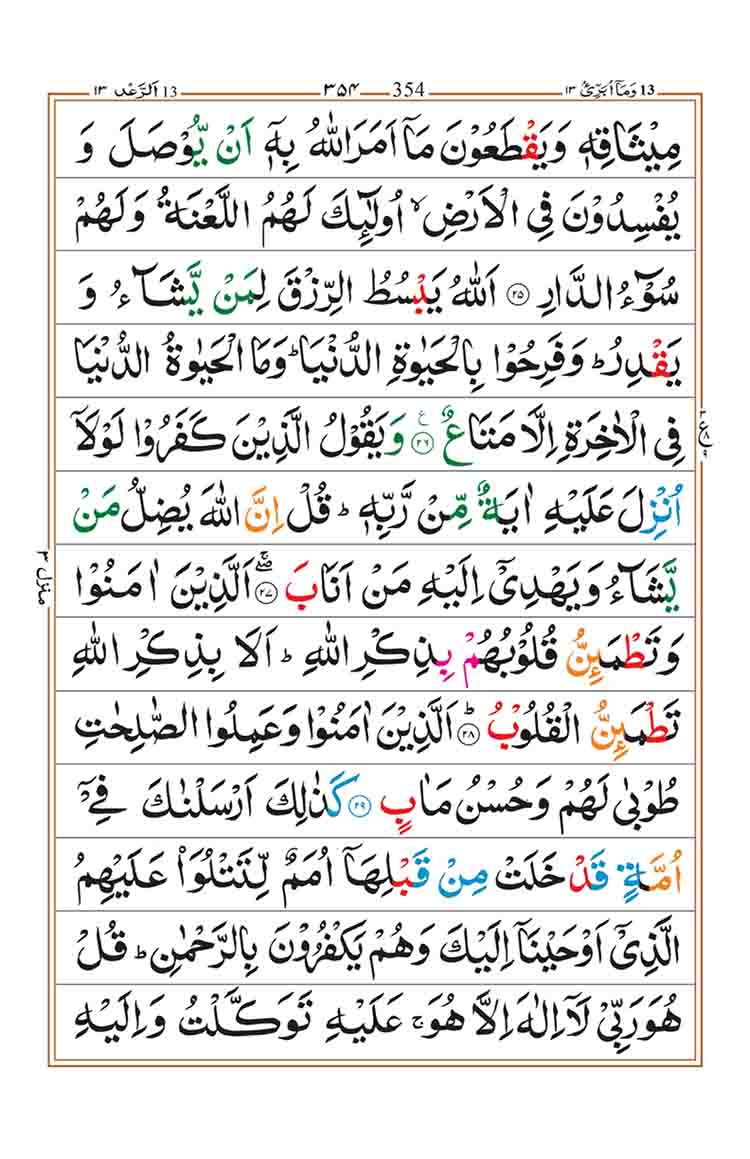 13 وَمَآ اُبَرِّیُٔ ۱۳ 354 ۳۵۴ 13 اَلرَّعْد ۱۳
مِیْثَاقِهٖ وَیَقْطَعُوْنَ مَاۤ اَمَرَ اللّٰهُ بِهٖۤ اَنْ یُّوْصَلَ وَ
یُفْسِدُوْنَ فِی الْاَرْضِ ۙ اُولٰٓئِكَ لَهُمُ اللَّعْنَةُ وَلَهُمْ
سُوْٓءُ الدَّارِ ۲۵ اَللّٰهُ یَبْسُطُ الرِّزْقَ لِمَنْ یَّشَآءُ وَ
یَقْدِرُ ؕ وَفَرِحُوْا بِالْحَیٰوةِ الدُّنْیَا ؕ وَمَا الْحَیٰوةُ الدُّنْیَا
فِی الْاٰخِرَةِ اِلَّا مَتَاعٌ ۲۶ وَیَقُوْلُ الَّذِیْنَ كَفَرُوْا لَوْلَاۤ
اُنْزِلَ عَلَیْهِ اٰیَةٌ مِّنْ رَّبِّهٖ ؕ قُلْ اِنَّ اللّٰهَ یُضِلُّ مَنْ
یَّشَآءُ وَیَهْدِیْۤ اِلَیْهِ مَنْ اَنَابَ ۲۷ اَلَّذِیْنَ اٰمَنُوْا
وَتَطْمَئِنُّ قُلُوْبُهُمْ بِذِكْرِ اللّٰهِ ؕ اَلَا بِذِكْرِ اللّٰهِ
تَطْمَئِنُّ الْقُلُوْبُ ؕ ۲۸ اَلَّذِیْنَ اٰمَنُوْا وَعَمِلُوا الصّٰلِحٰتِ
طُوْبٰی لَهُمْ وَحُسْنُ مَاٰبٍ ۲۹ كَذٰلِكَ اَرْسَلْنٰكَ فِیْۤ
اُمَّةٍ قَدْ خَلَتْ مِنْ قَبْلِهَاۤ اُمَمٌ لِّتَتْلُوَا۟ عَلَیْهِمُ
الَّذِیْۤ اَوْحَیْنَاۤ اِلَیْكَ وَهُمْ یَكْفُرُوْنَ بِالرَّحْمٰنِ ؕ قُلْ
هُوَ رَبِّیْ لَاۤ اِلٰهَ اِلَّا هُوَ ۚ عَلَیْهِ تَوَكَّلْتُ وَاِلَیْهِ
منزل ۳